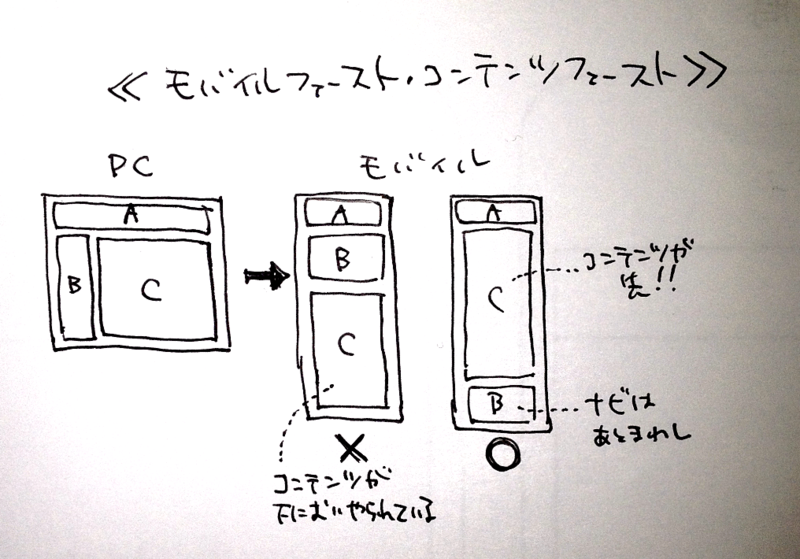 ≪ モバイルファースト・コンテンツファースト ≫
PC
モバイル
A
B
C
A
B
C
A
C
B
コンテンツが
先!!
ナビは
あとまわし
×
○
コンテンツが
下においやられている